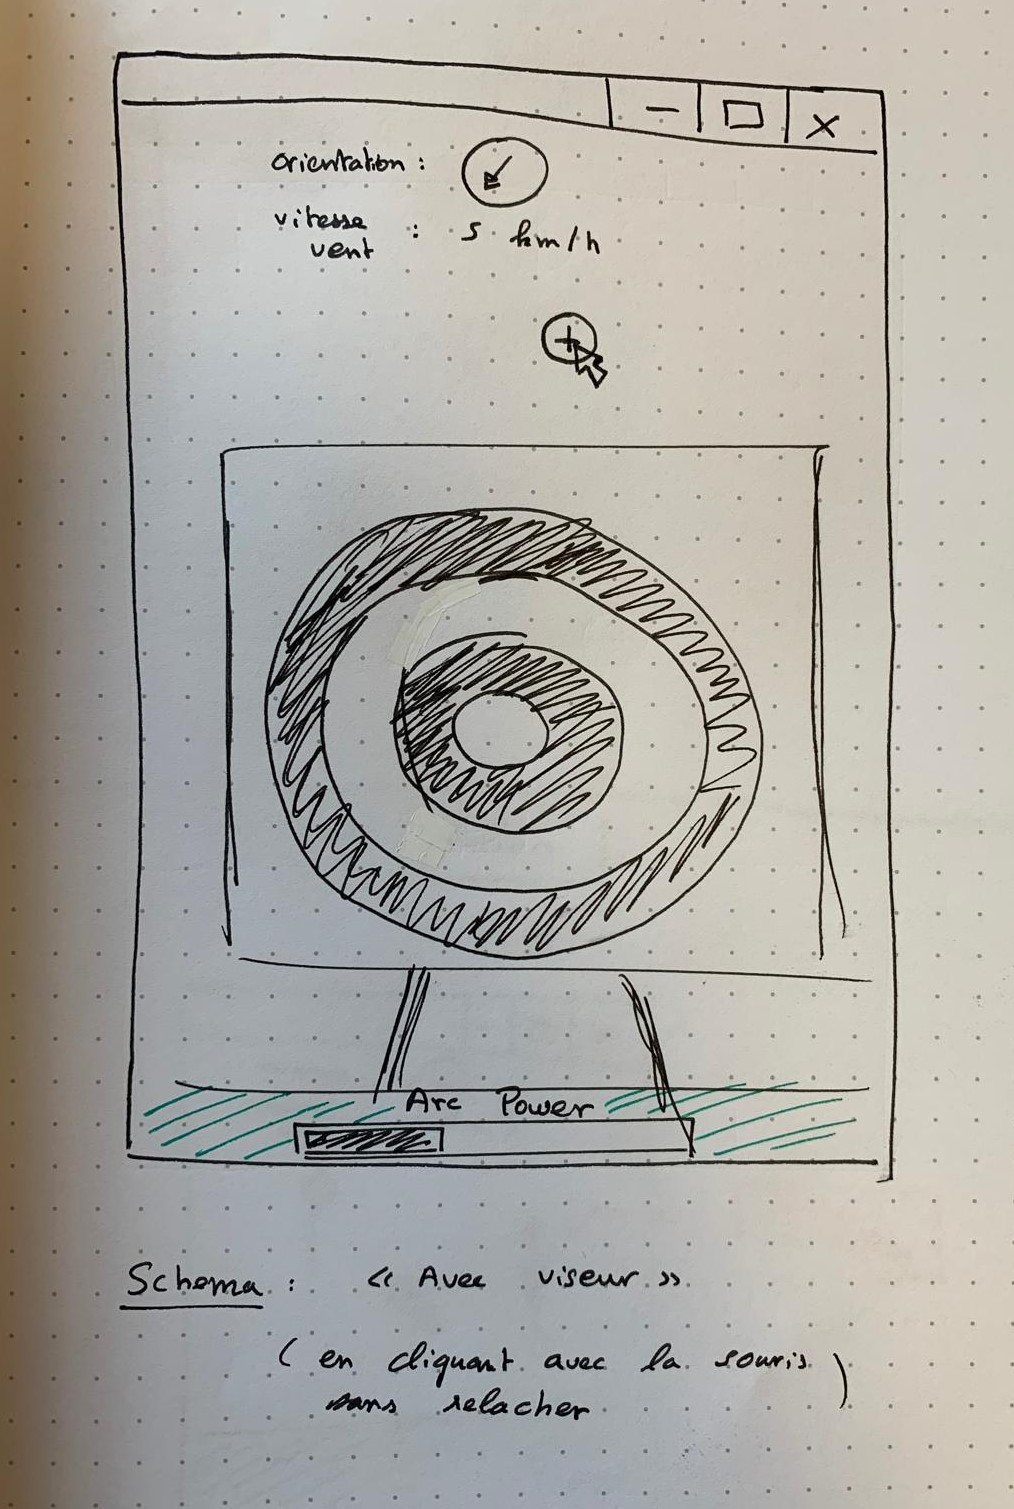 orientation :
vitesse
vent : 5 km/h
Arc Power
Schema : « Avec viseur »
( en cliquant avec la souris
sans relacher )